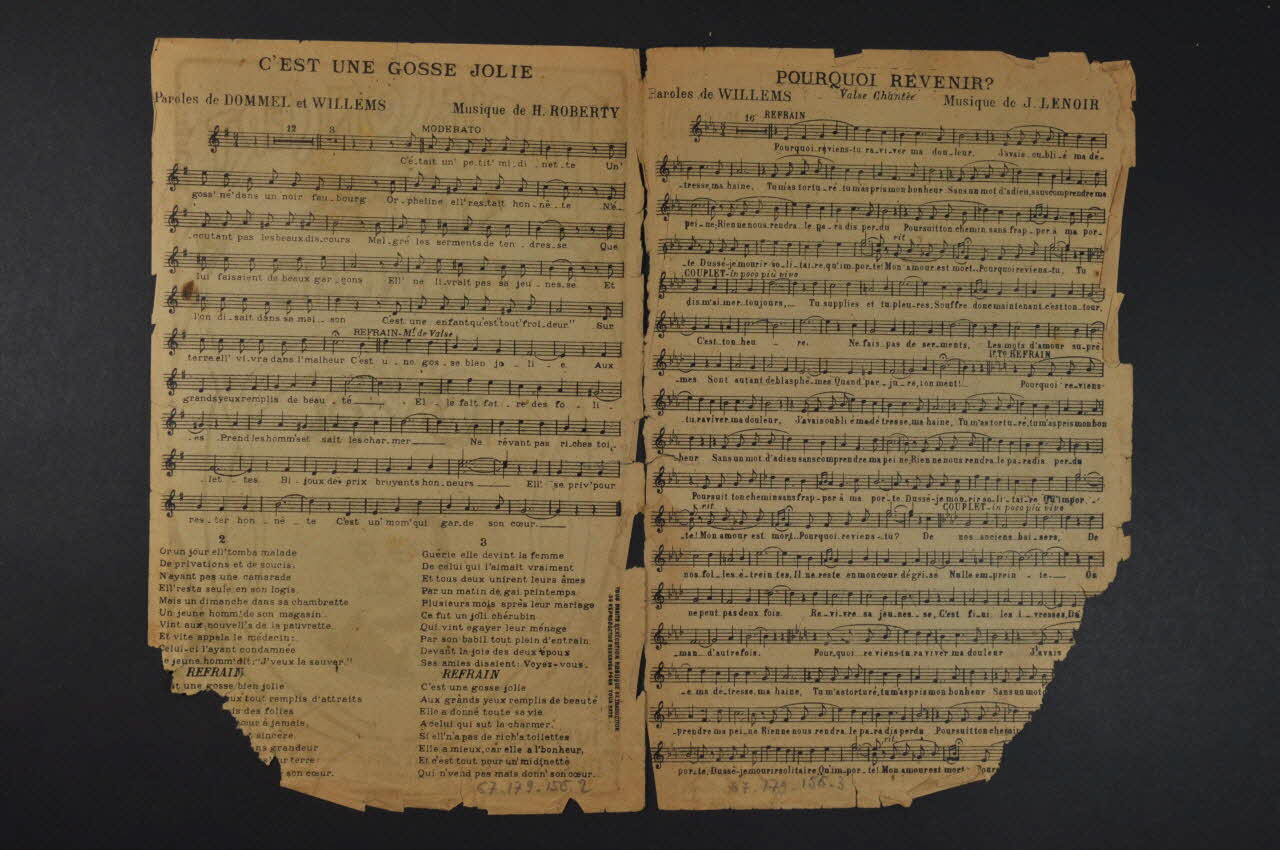 C'EST UNE GOSSE JOLIE
Paroles de DOMMEL et WILLEMS
Musique de H. ROBERTY
12
3
MODERATO
C'é_tait un' pe_tit' mi_di_net_te Un'
goss' né' dans un noir fau_bourg Or_pheline ell' res_tait hon_nê_te N'é_
_coutant pas les beaux dis_cours Mal_gré les serments de ten_dres_se Que
lui faisaient de beaux gar_çons Ell' ne li_vrait pas sa jeu_nes_se Et
l'on di_sait dans sa mai_son C'est une enfant qu'est tout' froi_deur." Sur
REFRAIN_Mt de Valse
terre ell' vi_vra dans l'malheur C'est u_ne gos_se bien jo_li_e Aux
grands yeux remplis de beau_té El_le fait fai_re des fo_li_
_es Prend les homm's et sait les char_mer Ne rêvant pas ri_ches toi_
_let_tes Bi_joux de prix bruyants hon_neurs Ell' se priv' pour
res_ter hon_nê_te C'est un' mom' qui gar_de son cœur.
2
Or un jour ell' tomba malade
De privations et de soucis.
N'ayant pas une camarade
Ell' resta seule en son logis.
Mais un dimanche dans sa chambrette
Un jeune homm' de son magasin.
Vint aux nouvell's de la pauvrette
Et vite appela le médecin:
Celui-ci l'ayant condamnée
e jeune homm' dit: "J'veux la sauver."
REFRAIN
st une gosse bien jolie
ux tout remplis d'attraits
des folies
à jamais
sincère
grandeur
terre
son cœur.
3
Guérie elle devint la femme
De celui qui l'aimait vraiment
Et tous deux unirent leurs âmes
Par un matin de gai printemps
Plusieurs mois après leur mariage
Ce fut un joli chérubin
Qui vint égayer leur ménage
Par son babil tout plein d'entrain
Devant la joie des deux époux
Ses amies disaient: Voyez-vous.
REFRAIN
C'est une gosse jolie
Aux grands yeux remplis de beauté
Elle a donné toute sa vie
A celui qui sut la charmer.
Si ell' n'a pas de rich's toilettes
Elle a mieux, car elle a l'bonheur,
Et c'est tout pour un' midinette
Qui n'vend pas mais donn' son cœur.
67.179.156.2
POURQUOI REVENIR?
Paroles de WILLEMS
Valse Chantée
Musique de J. LENOIR
16
REFRAIN
Pourquoi reviens-tu ra_vi_ver ma dou_leur. J'avais ou_bli_é ma dé_
_tresse, ma haine, Tu m'as tor tu_ré, tu m'as pris mon bonheur Sans un mot d'adieu, sans comprendre ma
pei_ne; Rien ne nous rendra le pa_ra dis per_du Poursuit ton chemin sans frap_per à ma por_
rit
_te Dussé-je mourir so_li_tai_re, qu'im_por_te! Mon amour est mort_Pourquoi reviens-tu. Tu
COUPLET_in poco più vivo
dis m'ai_mer toujours,_ Tu supplies et tu pleu_res, Souffre donc maintenant c'est ton tour,
C'est ton heu_re. Ne fais pas de ser_ments, Les mots d'amour su_prê_
REFRAIN
_mes Sont autant de blasphè_mes Quand par_ju_re, ion ment!... Pourquoi re_viens-
_tu raviver ma douleur, J'avais oubli é ma dé tresse, ma haine, Tu m'as tor tu_ré, tu m'as pris mon bon
_heur Sans un mot d'adieu sans comprendre ma pei ne, Rien ne nous rendra le pa_radis per_du
Poursuit ton chemin sans frap_per à ma por_te Dussé-je mou_rir so_li_tai_re Qu'impor_
rit
COUPLET_in poco più vivo
_te! Mon amour est mort_Pourquoi reviens-tu? De nos anciens bai_sers, De
nos fol_les é_trein tes, Il ne reste en mon cœur dé gri_sé Nulle em_prein_te On
ne peut pas deux fois. Re_vi_vre sa jeu_nes_se, C'est fi_ni les i_vresses, Du
_man_d'autrefois. Pour_quoi re viens-tu raviver ma douleur J'avais
_e ma dé_tresse, ma haine, Tu m'as torturé, tu m'as pris mon bonheur Sans un mot
_prendre ma pei_ne Rien ne nous rendra le pa radis perdu Poursuit ton chemin
rit
por_te; Dussé-je mourir solitaire, Qu'im_por_te! Mon amour est mort_Pour
67.179.156.3